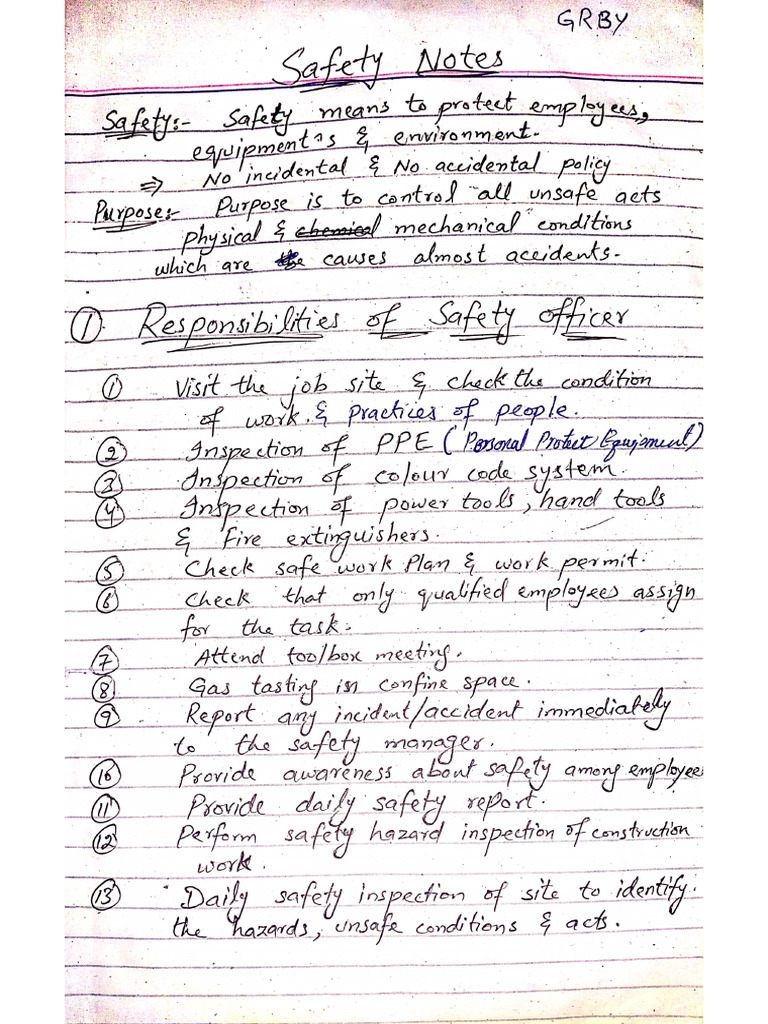 GRBY
Safety Notes
Safety:- Safety means to protect employees,
equipments & environment.
⇒ No incidental & No accidental policy
Purpose:- Purpose is to control all unsafe acts
physical & chemical mechanical conditions
which are the causes almost accidents.
① Responsibilities of Safety officer
① Visit the job site & check the condition
of work. & practices of people.
② Inspection of PPE (Personal Protect Equipment)
③ Inspection of colour code system.
④ Inspection of power tools, hand tools
& Fire extinguishers.
⑤ Check safe work Plan & work permit.
⑥ Check that only qualified employees assign
for the task.
⑦ Attend toolbox meeting.
⑧ Gas tasting in confine space.
⑨ Report any incident/accident immediately
to the safety manager.
⑩ Provide awareness about safety among employees
⑪ Provide daily safety report.
⑫ Perform safety hazard inspection of construction
work.
⑬ Daily safety inspection of site to identify
the hazards, unsafe conditions & acts.